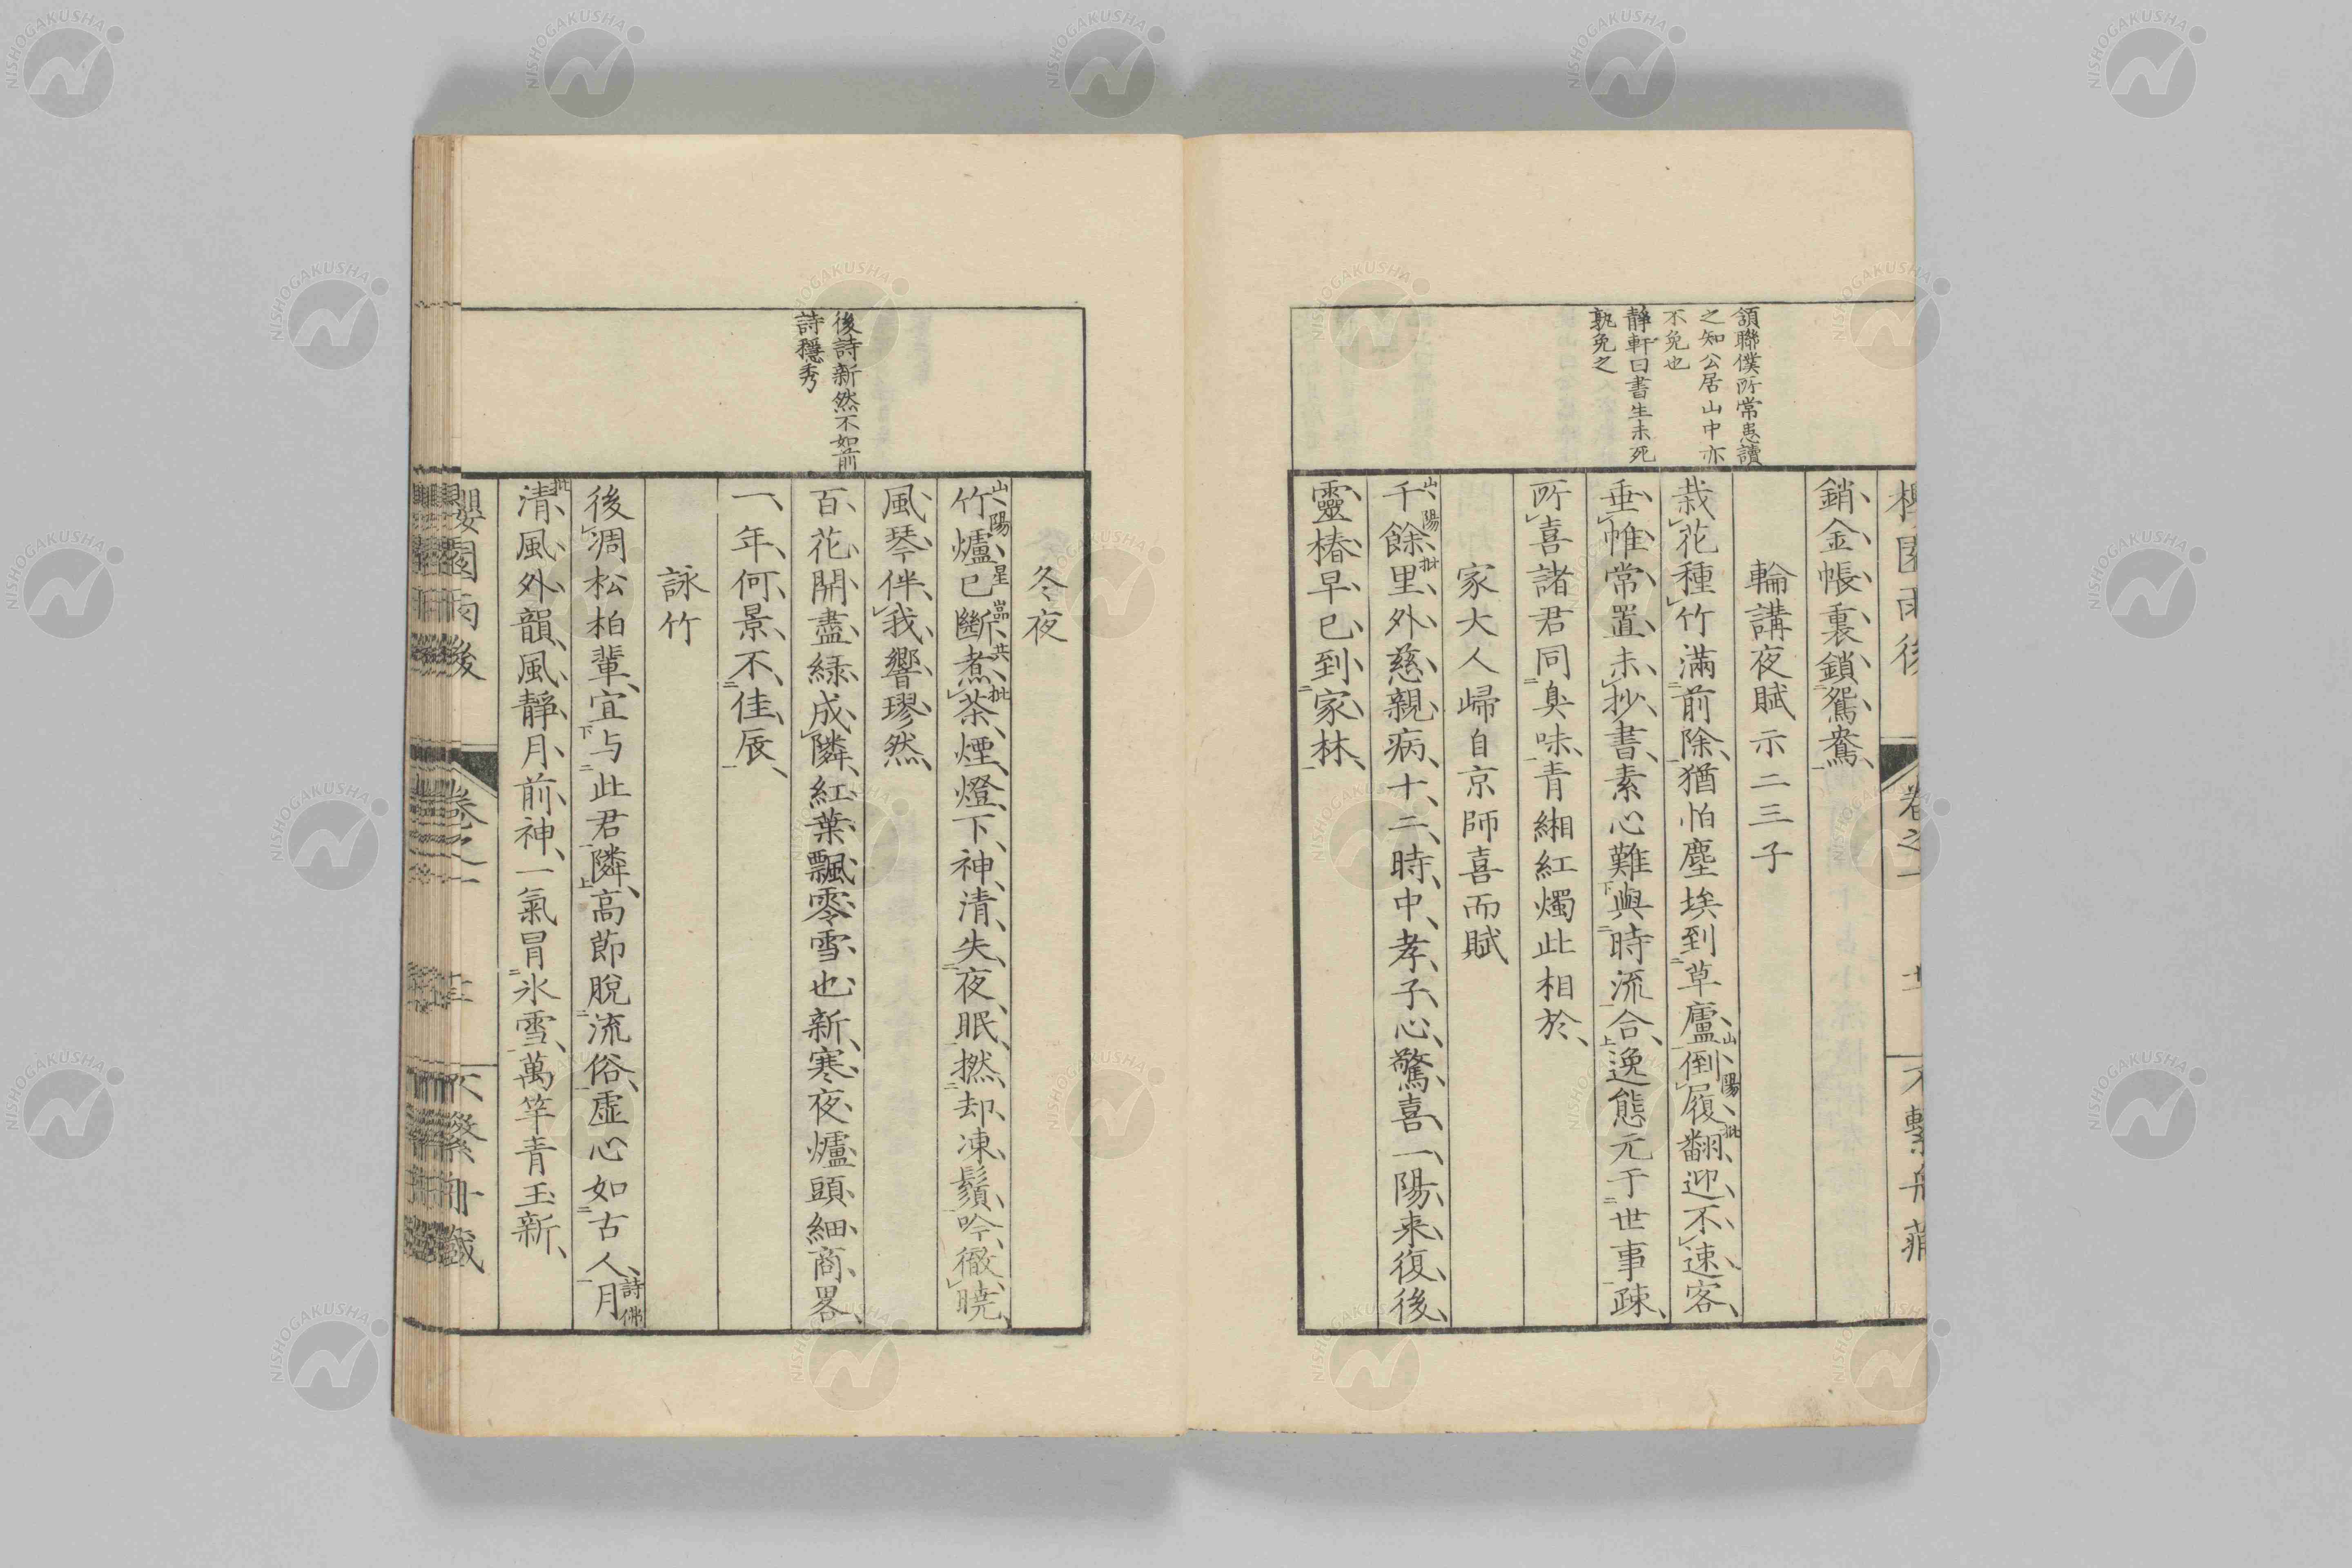 銷金帳裏鎖鴛鴦
輪講夜賦示二三子
栽花種竹滿前除猶怕塵埃到草廬倒履翻迎不速客
山陽批
垂帷常置未抄書素心難與時流合逸態元于世事疎
所喜諸君同臭味青緗紅燭此相於
家大人歸自京師喜而賦
千餘里外慈親病十二時中孝子心驚喜一陽来復後
山陽批
靈椿早已到家林
頷聯僕所常患讀
之知公居山中亦
不免也
靜軒曰書生未死
孰免之
冬夜
竹爐已斷煮茶煙燈下神清失夜眠撚却凍鬚吟徹曉
山陽星巖共批
風琴伴我響璆然
百花開盡綠成隣紅葉飄零雪也新寒夜爐頭細商畧
一年何景不佳辰
詠竹
後凋松柏輩宜与此君隣高節脫流俗虛心如古人月
詩佛
清風外韻風靜月前神一氣冐氷雪萬竿青玉新
批
後詩新然不如前
詩穩秀
櫻園雨後
卷之一
不繫舟藏
NISHOGAKUSHA